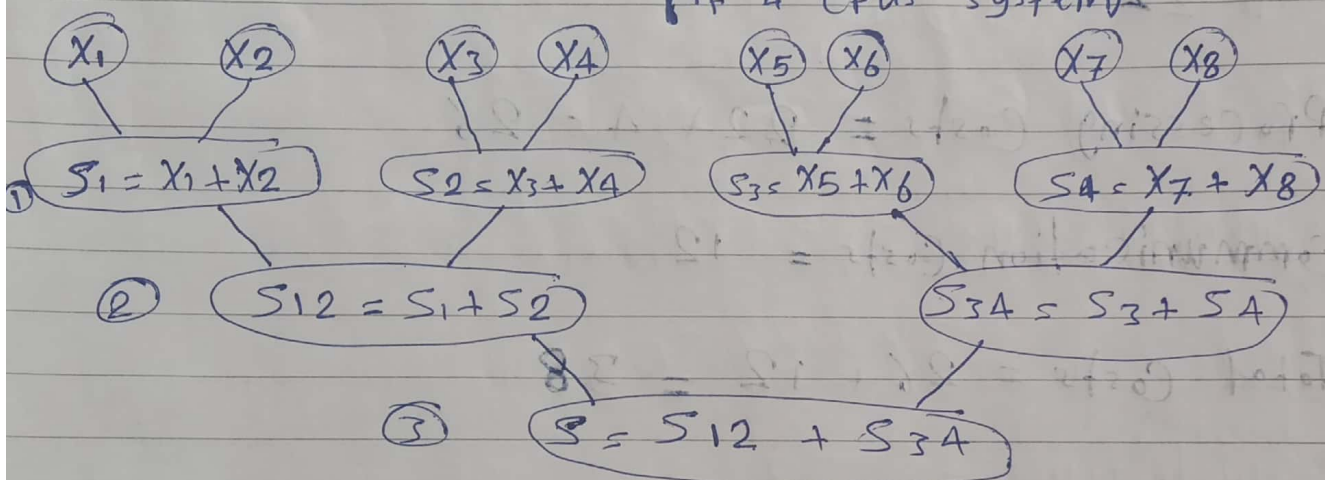 4 CPUs system
X1 X2 X3 X4 X5 X6 X7 X8
① S1 = X1 + X2 S2 = X3 + X4 S3 = X5 + X6 S4 = X7 + X8
② S12 = S1 + S2 S34 = S3 + S4
③ S = S12 + S34